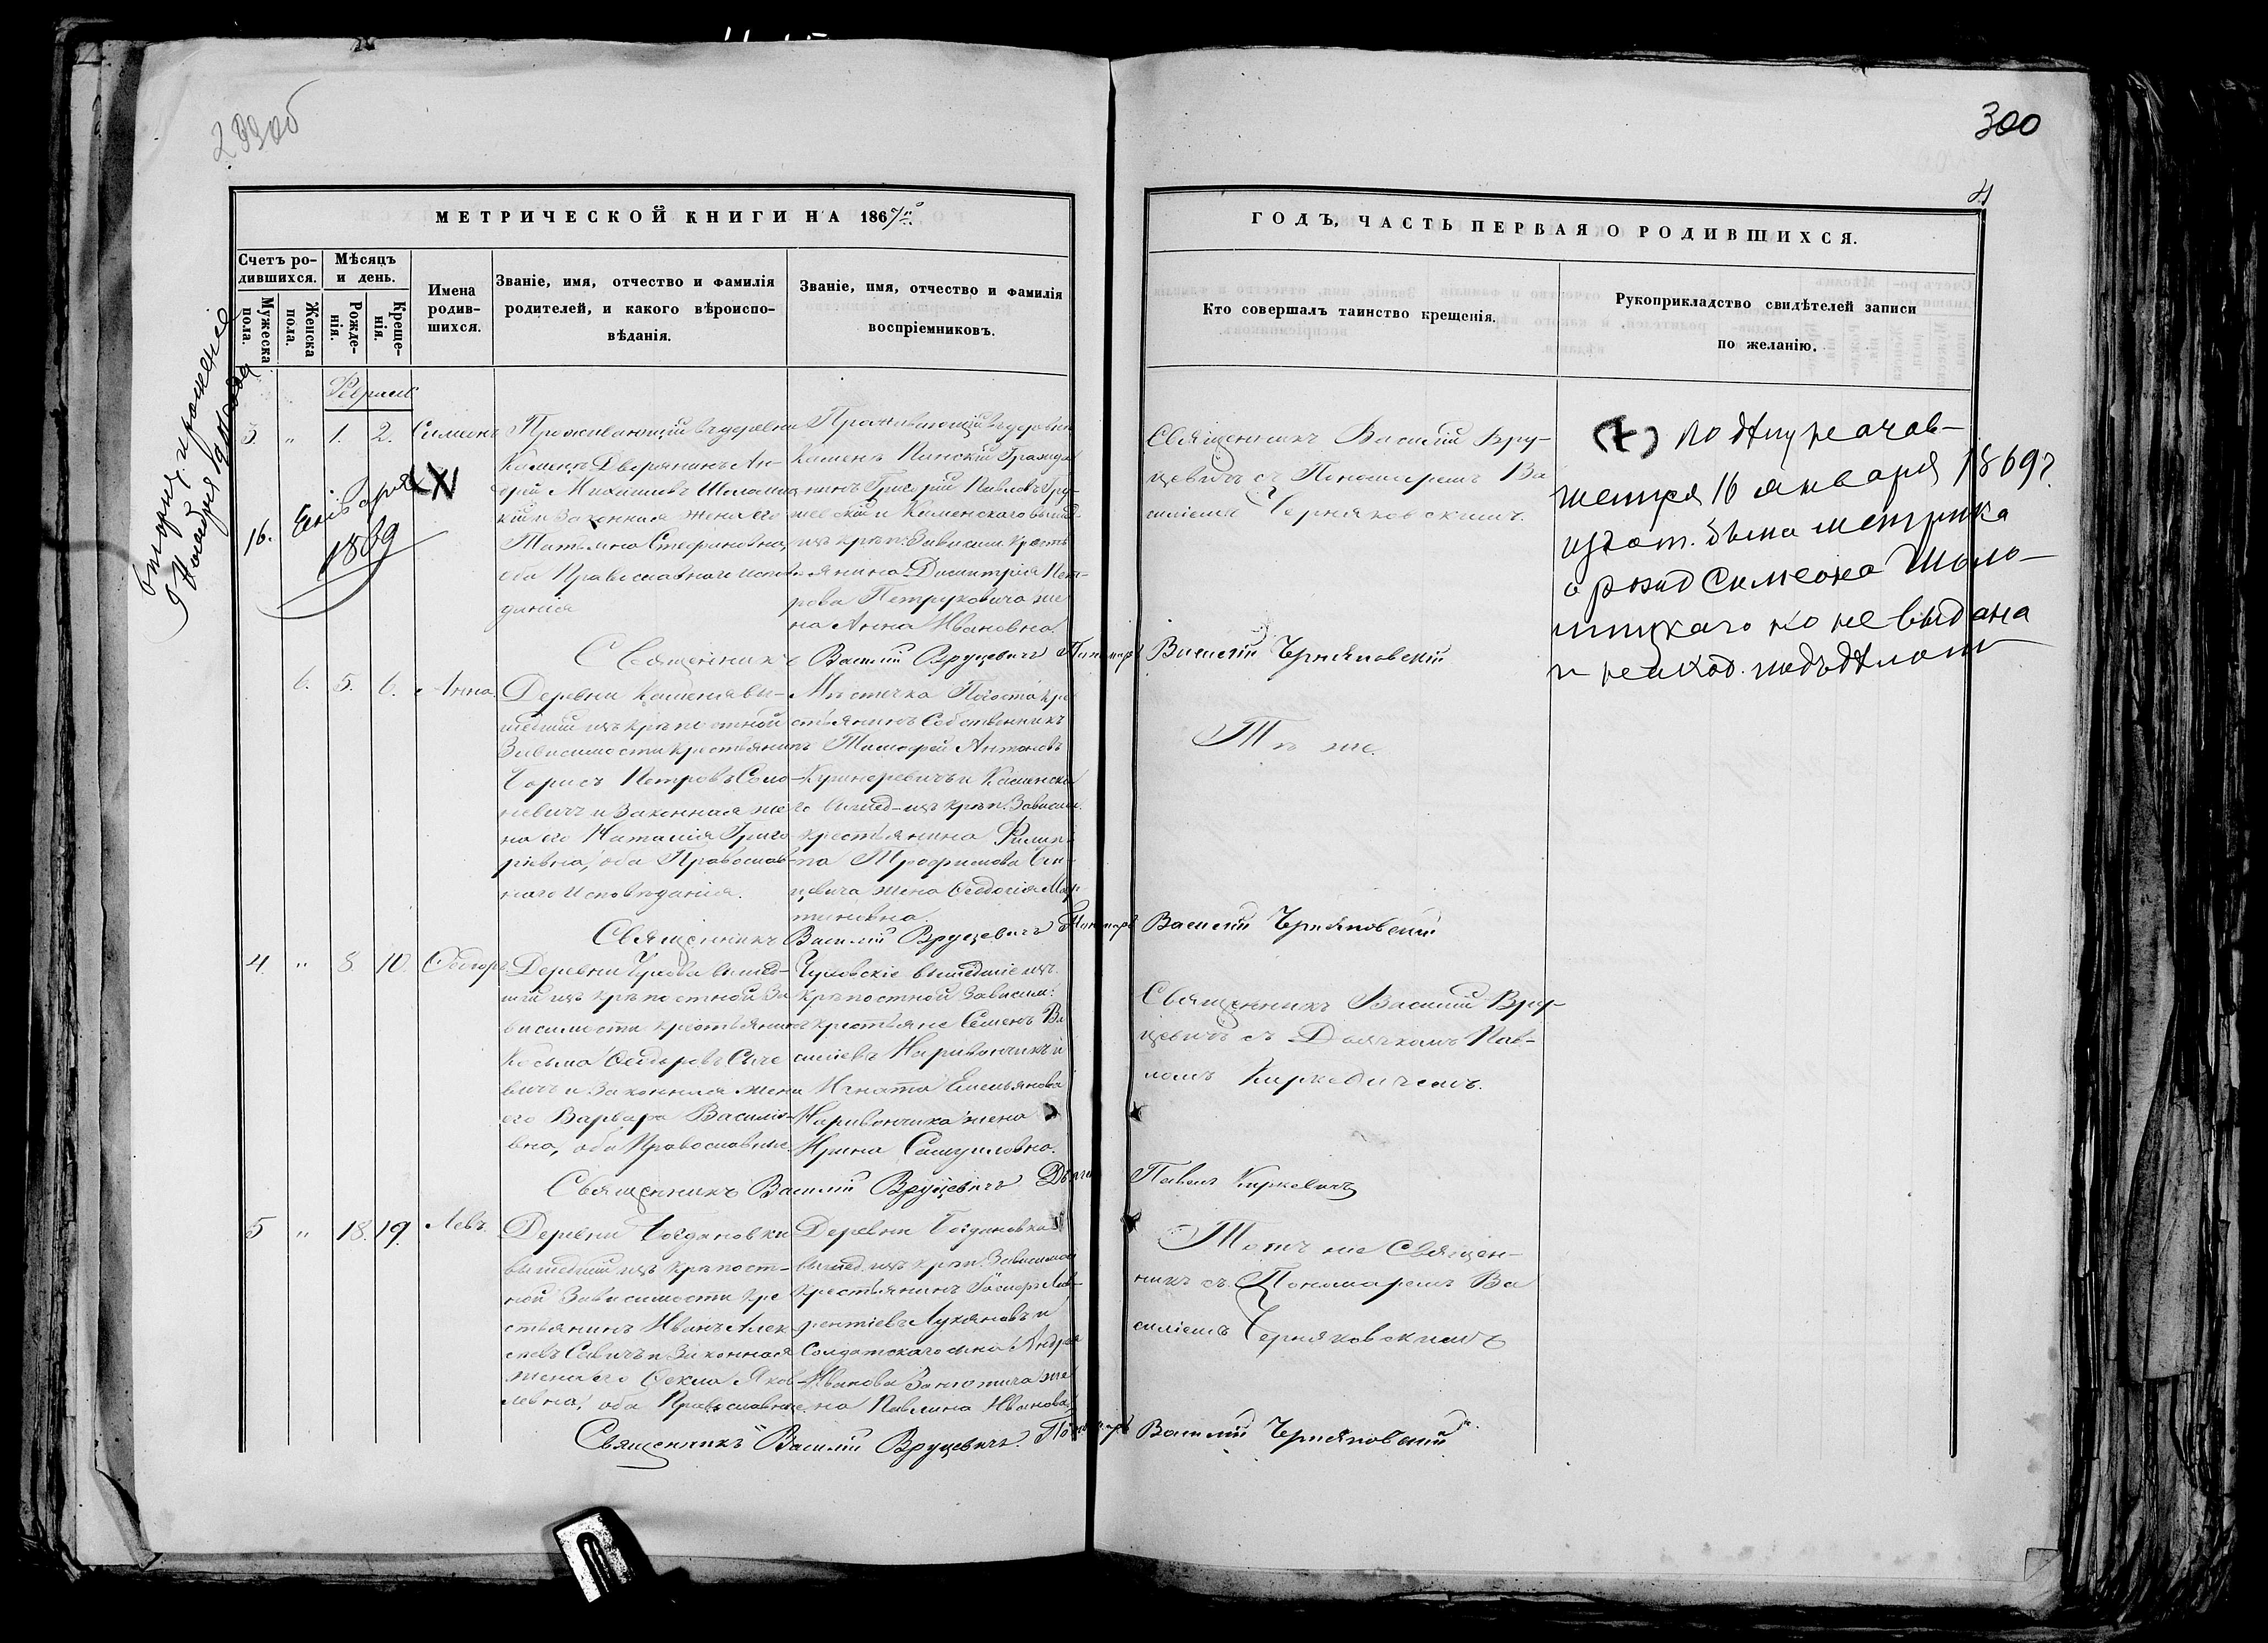 299об
300
4
МЕТРИЧЕСКОЙ КНИГИ НА 1867й
ГОДЪ, ЧАСТЬ ПЕРВАЯ О РОДИВШИХСЯ.
Счетъ родившихся.
Мѣсяцъ и день.
Мужеска пола.
Женска пола.
Рожденія.
Крещенія.
Имена родившихся.
Званіе, имя, отчество и фамилія
родителей, и какого вѣроиспо-
вѣданія.
Званіе, имя, отчество и фамилія
воспріемниковъ.
Кто совершалъ таинство крещенія.
Рукоприкладство свидѣтелей записи
по желанію.
прошеніе
9 Ноября
16.
1869
Февраль
3 " 1. 2. Симеонъ
Проживающій въ деревни
Камень Дворянинъ Ан-
дрей Михаиловъ Шоломиц
кій и Законная жена его
Татьяна Стефановна,
оба Православнаго испо-
вѣданія
Проживающій въ деревни
Камень Пинскій Гражда
нинъ Григорій Павловъ Гру-
шевскій и Каменскаго вышед.
изъ крѣп. Зависим. Кресть
янина Димитрія Пет-
рова Петруковича же
на Анна Ивановна.
Священникъ Василій Вру-
цевичъ съ Пономаремъ Ва
силіемъ Черняковскимъ.
(+) по дѣлу
16 января 1869 г.
метрика
о рожд Симеона Шоло-
мицкаго но не выдана
Священникъ Василій Вруцевичъ Пономарь Василій Черняковскій
6. 5. 6. Анна.
Деревни Каменя вы-
шедшій изъ крѣпостной
Зависимости крестьянинъ
Борисъ Петровъ Соло-
невичъ и Законная же
на его Наталія Григо
ріевна, оба Православ-
наго Исповѣданія.
Мѣстечка Погоста кре
стьянинъ Собственникъ
Тимофей Антоновъ
Кушнеревичъ и Каменска
го вышед-изъ крѣп. Зависим.
крестьянина Филип-
па Трофимова
жена Ѳеодосія Мар-
тиновна.
Тѣ же.
Священникъ Василій Вруцевичъ Пономарь Василій Черняковскій
4 " 8 10. Ѳеодоръ
Деревни Чухова вышед-
шій изъ крѣпостной За
висимости крестьянинъ
Козьма Ѳеодоровъ
вичъ и Законная жена
его Варвара Василіе-
вна, оба Православные.
Чуховскіе вышедшіе изъ
крѣпостной Зависим:
крестьяне Семенъ Ва
силіевъ Наривончикъ и
Игната Емельянова
Наривончика жена
Ирина Самуиловна.
Священникъ Василій Вру-
цевичъ съ Дьячкомъ Пав-
ломъ Киркевичемъ.
Священникъ Василій Вруцевичъ Дьячекъ Павелъ Киркевичъ
5 " 18. 19. Левъ.
Деревни Богдановки
вышедшій изъ крѣпост-
ной Зависимости кре
стьянинъ Иванъ Алек-
сѣевъ Савичъ и Законная
жена его Ѳекла Яков-
левна, оба Православные
Деревни Богдановка
вышед. изъ крѣп. Зависимос
крестьянинъ Лав-
рентіевъ Лукяновъ и
Солдатскаго сына Андрея
Иванова же
на Павлина Иванова,
Тотъ же Священ-
никъ съ Пономаремъ Ва
силіемъ Черняковскимъ
Священникъ Василій Вруцевичъ. Пономарь Василій Черняковскій